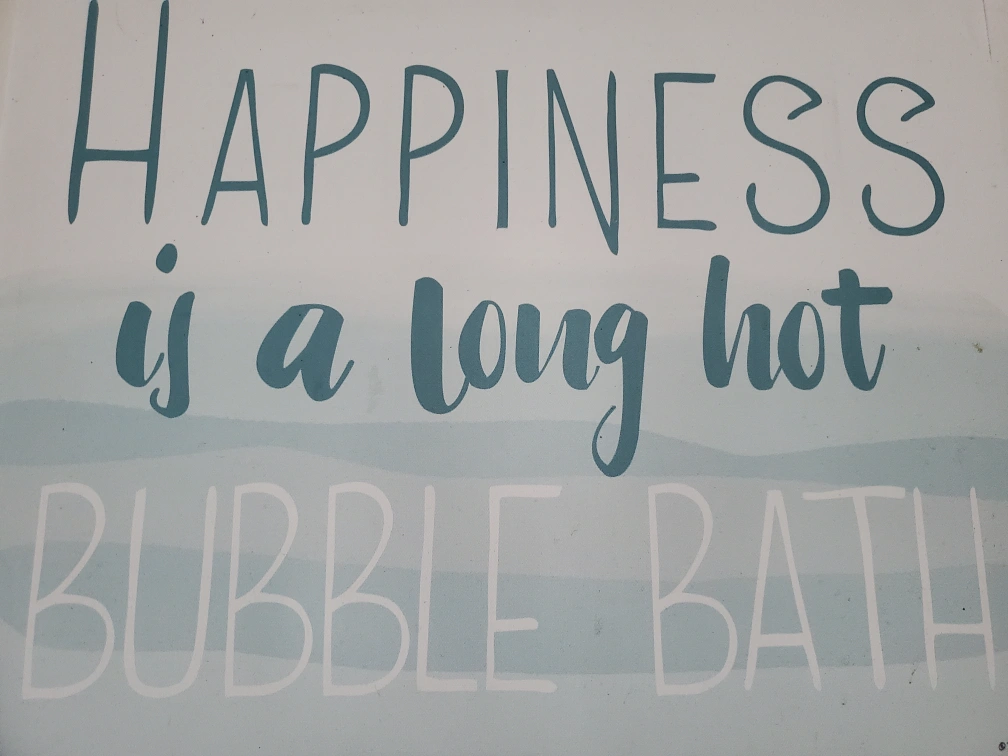 HAPPINESS
is a long hot
BUBBLE BATH